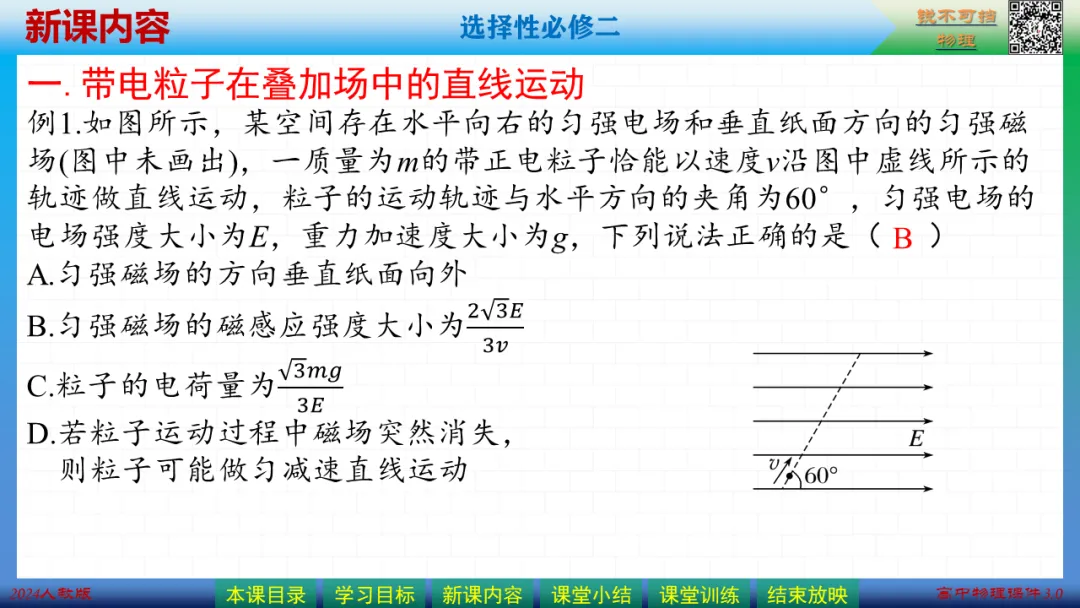 新课内容
选择性必修二
锐不可挡
物理
一. 带电粒子在叠加场中的直线运动
例1.如图所示，某空间存在水平向右的匀强电场和垂直纸面方向的匀强磁
场(图中未画出)，一质量为m的带正电粒子恰能以速度v沿图中虚线所示的
轨迹做直线运动，粒子的运动轨迹与水平方向的夹角为60°，匀强电场的
电场强度大小为E，重力加速度大小为g，下列说法正确的是（ B ）
A.匀强磁场的方向垂直纸面向外
B.匀强磁场的磁感应强度大小为2√3E/3v
C.粒子的电荷量为√3mg/3E
D.若粒子运动过程中磁场突然消失，
则粒子可能做匀减速直线运动
E
v
60°
2024人教版
本课目录
学习目标
新课内容
课堂小结
课堂训练
结束放映
高中物理课件3.0